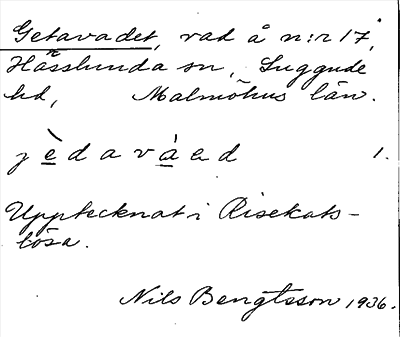 Getavadet, vad å n:r 17,
Hässlunda sn, Luggude
hd, Malmöhus län.
jèdavàed 1.
Upptecknat i Risekats-
lösa.
Nils Bengtsson 1936.